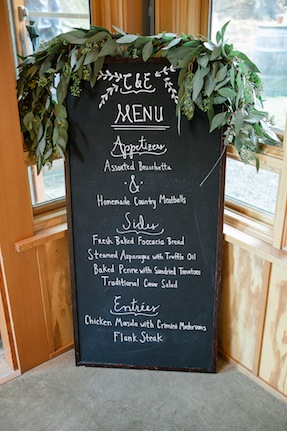 C & E
MENU
Appetizers
Assorted Bruschetta
&
Homemade Country Meatballs
Sides
Fresh Baked Foccacia Bread
Steamed Asparagus with Truffle Oil
Baked Penne with Sundried Tomatoes
Traditional Caesar Salad
Entrées
Chicken Marsala with Crimini Mushrooms
Flank Steak